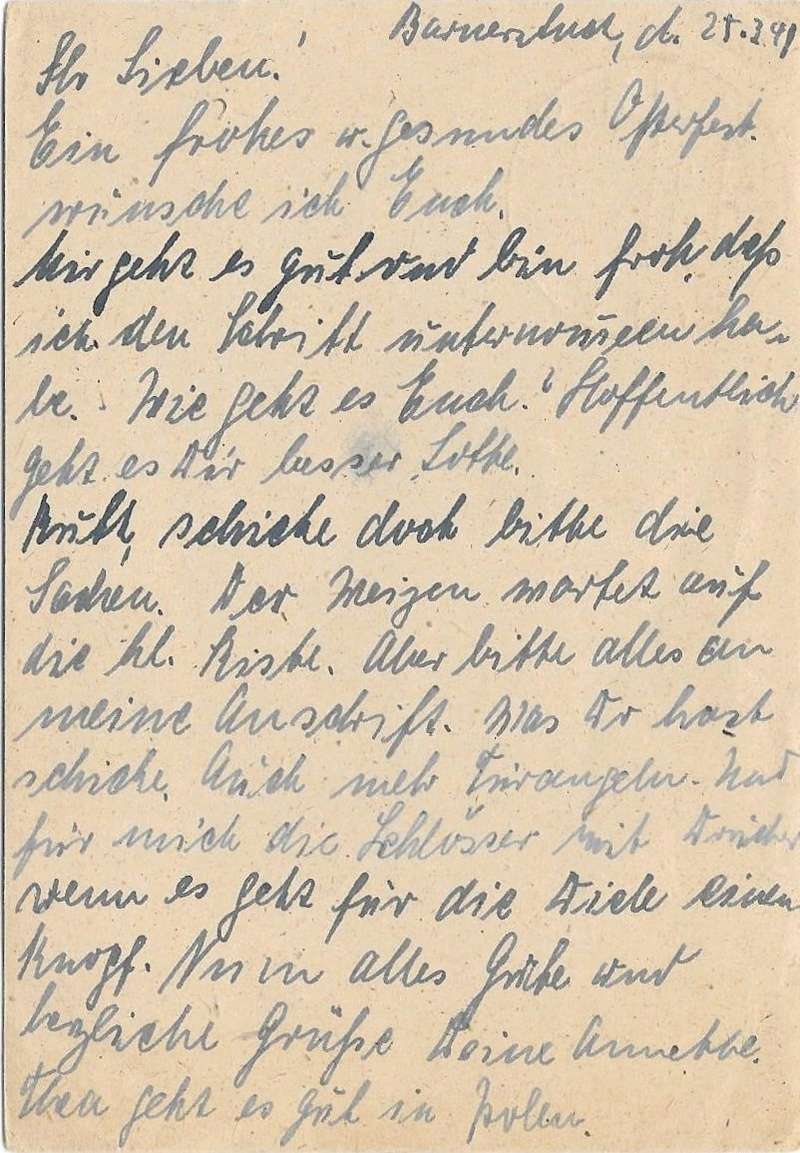 Barnerstück, d. 25.3.41
Ihr Lieben!
Ein frohes u. gesundes Osterfest
wünsche ich Euch.
Mir geht es gut und bin froh, daß
ich den Schritt unternommen ha-
be. Wie geht es Euch? Hoffentlich
geht es Dir besser, Lotte.
Rutt, schicke doch bitte die
Sachen. Der Weizen wartet auf
die kl. Kiste. Aber bitte alles an
meine Anschrift. Was Du hast
schicke. Auch mehr Türangeln. Und
für mich die Schlösser mit Drücker
wenn es geht für die Diele einen
Knopf. Nun alles Gute und
herzliche Grüße Deine Annette.
Thea geht es gut in Polen.